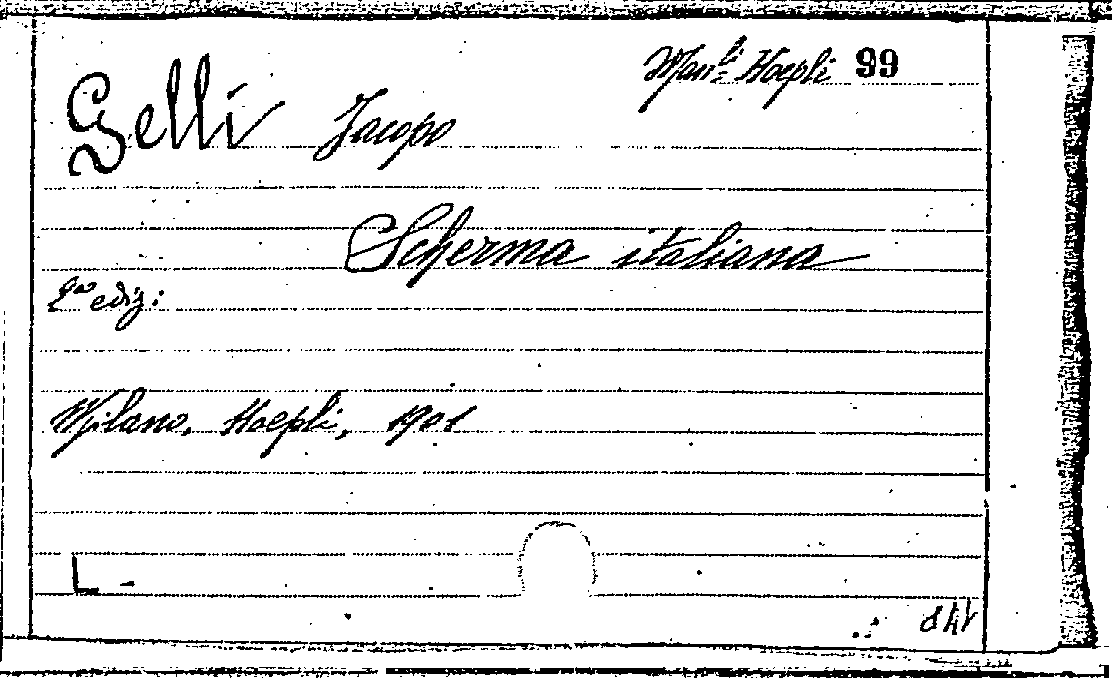 Man.li Hoepli 99
Gelli Jacopo
Scherma italiana
2a ediz:
Milano, Hoepli, 1901
L -